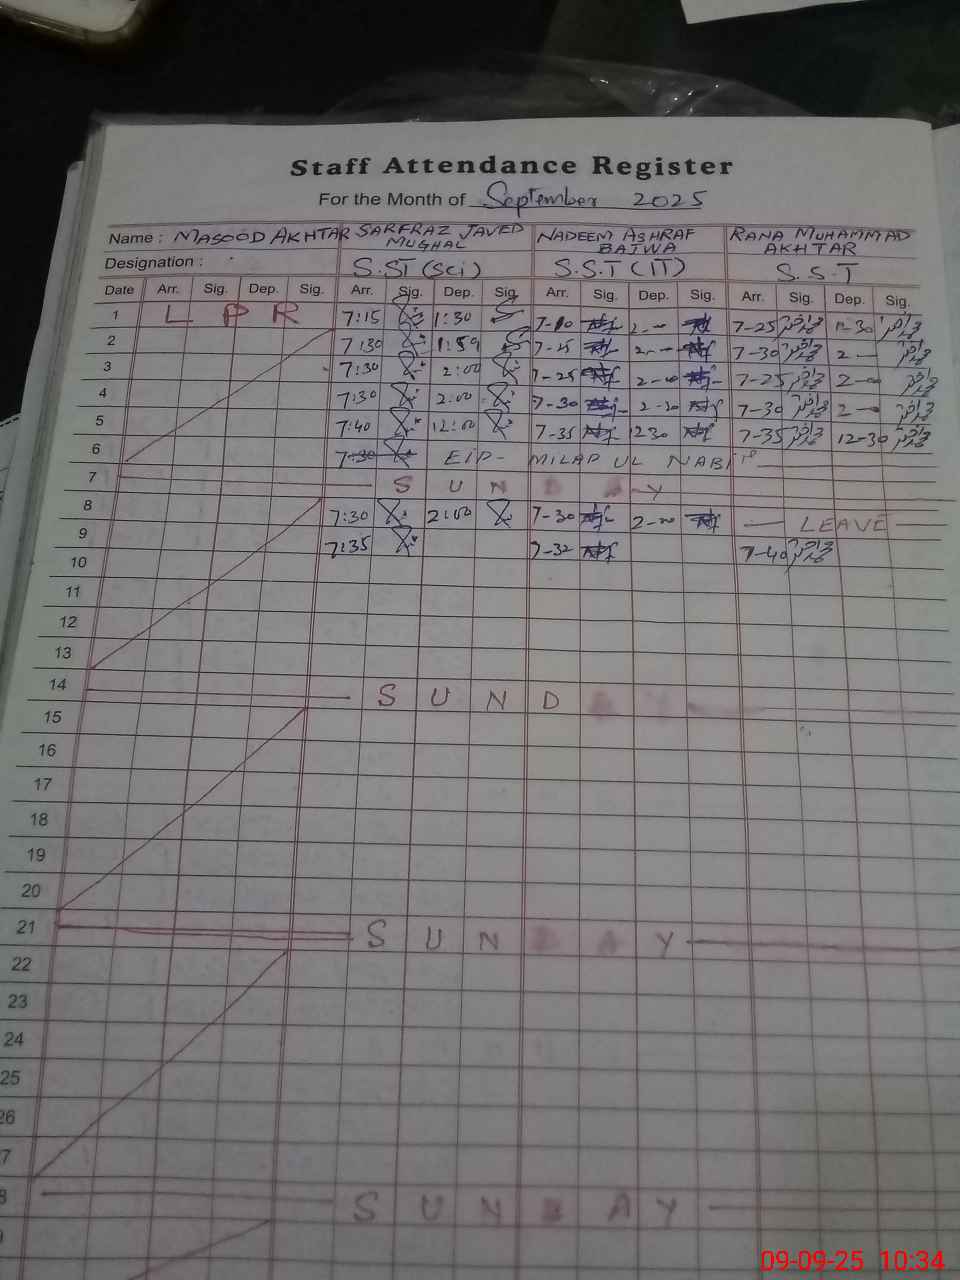 Staff Attendance Register
For the Month of September 2025
Name : MASOOD AKHTAR SARFRAZ JAVED MUGHAL NADEEM ASHRAF BAJWA RANA MUHAMMAD AKHTAR
Designation : S.ST (Sci) S.S.T (IT) S.S.T
Date Arr. Sig. Dep. Sig. Arr. Sig. Dep. Sig. Arr. Sig. Dep. Sig. Arr. Sig. Dep. Sig.
1 L P R 7:15 1:30 7-25
2 7:30 1:59 7-30 2—
3 7:30 2:00 7-25 2-00 7-25 2-00
4 7:30 2:00 7-30 7-30 2-00
5 7:40 12:00 7-35 1230 7-35 12-30
6 7-30 EID- MILAD UL NABI
7 S U N D A Y
8 7:30 2:00 7-30 2-00 LEAVE
9 7:35 7-32 7-40
10
11
12
13
14 S U N D A Y
15
16
17
18
19
20
21 S U N D A Y
22
23
24
25
26
7
8 S U N D A Y
09-09-25 10:34